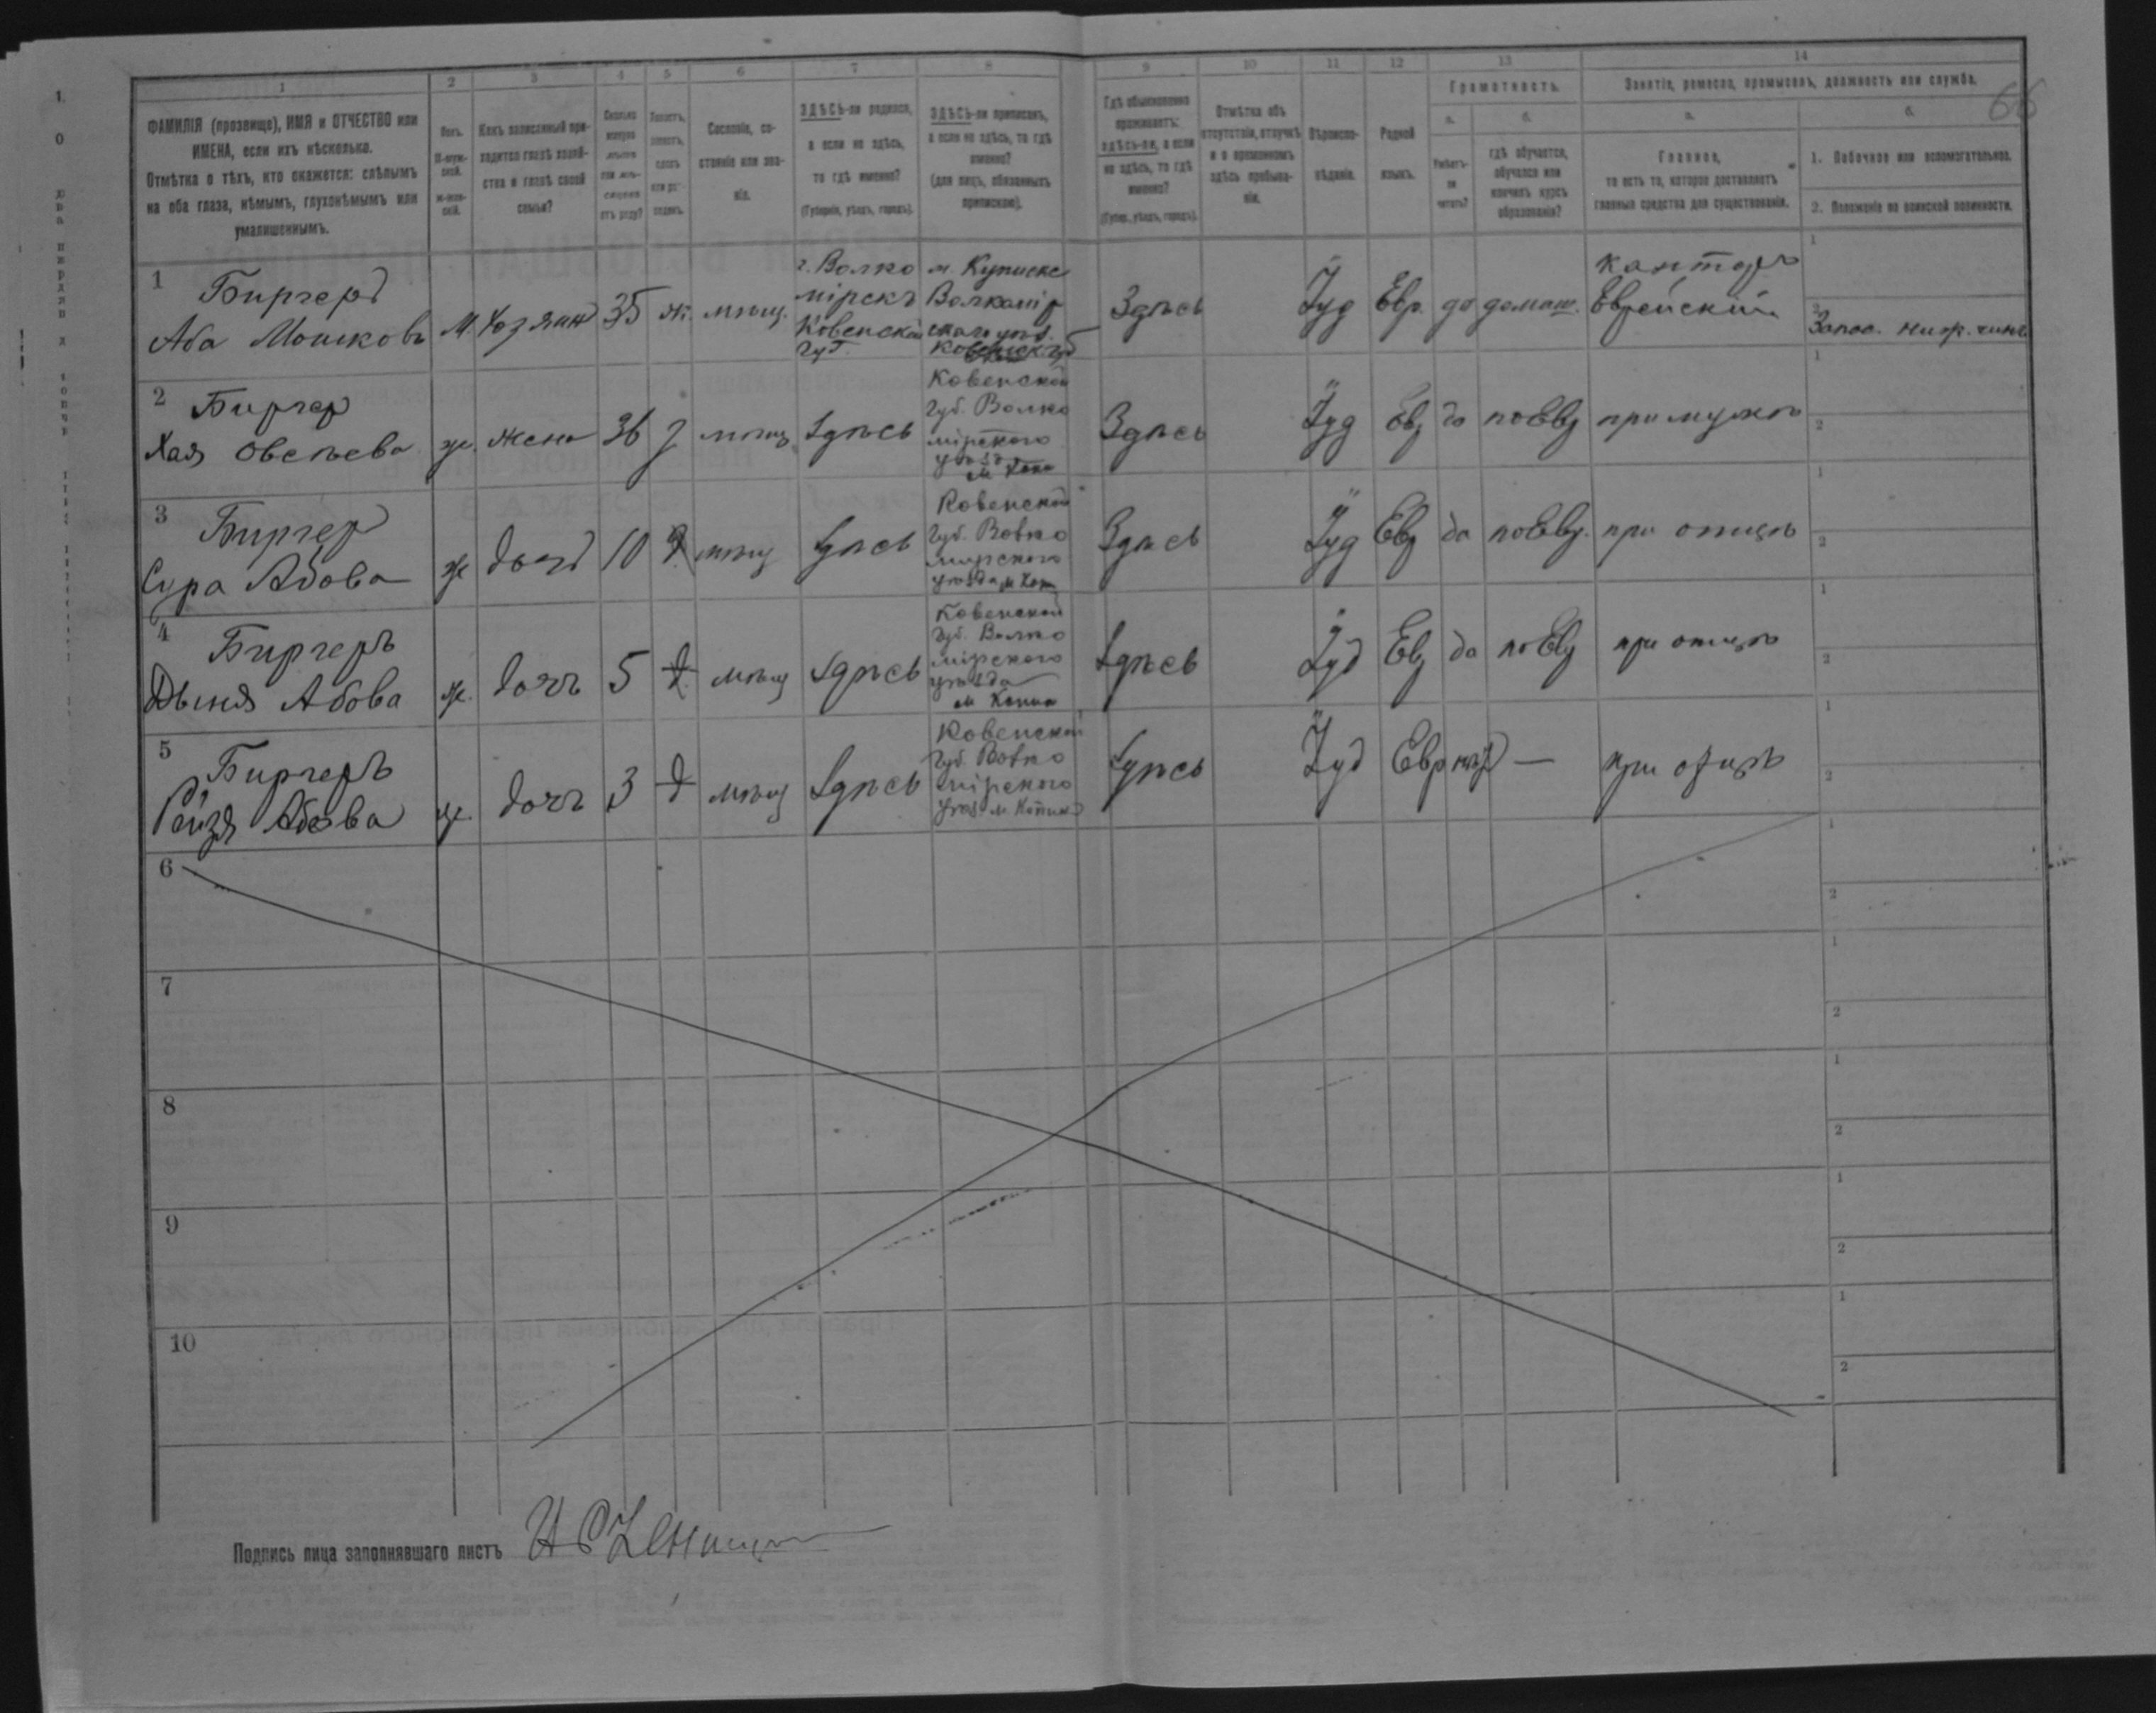 66
1 2 3 4 5 6 7 8 9 10 11 12 13 14
ФАМИЛІЯ (прозвище), ИМЯ и ОТЧЕСТВО или
ИМЕНА, если ихъ нѣсколько.
Отмѣтка о тѣхъ, кто окажется: слѣпымъ
на оба глаза, нѣмымъ, глухонѣмымъ или
умалишеннымъ.
Полъ.
М-муж-
ской.
Ж-жен-
скій.
Какъ записанный при-
ходится главѣ хозяй-
ства и главѣ своей
семьи?
Сословіе, со-
стояніе или зва-
ніе.
ЗДѢСЬ-ли родился,
а если не здѣсь,
то гдѣ именно?
(Губернія, уѣздъ, городъ).
ЗДѢСЬ-ли приписанъ,
а если не здѣсь, то гдѣ
именно?
(для лицъ, обязанныхъ
припискою).
Гдѣ обыкновенно
проживаетъ:
здѣсь-ли, а если
не здѣсь, то гдѣ
именно?
(Губер., уѣздъ, городъ).
Отмѣтка объ
отсутствіи, отлучкѣ
и о временномъ
здѣсь пребыва-
ніи.
Вѣроиспо-
вѣданіе.
Родной
языкъ.
Грамотность.
а. б.
Умѣетъ-
ли
читать?
гдѣ обучается,
обучался или
кончилъ курсъ
образованія?
Занятіе, ремесло, промыселъ, должность или служба.
а. б.
Главное,
то есть то, которое доставляетъ
главныя средства для существованія.
1. Побочное или вспомогательное.
2. Положеніе по воинской повинности.
1 Биргеръ
Аба Мошковъ
М. Хозяинъ 35 ж. мѣщ.
г. Волко
мірскъ
Ковенской
губ.
м. Купишк
Волкомір
скаго уѣз.
Ковенск. губ
Здѣсь Іуд Евр. да домаш.
канторъ
Еврейскій
1
2 Запас. ниж. чинъ
2 Биргер
Хая Овсѣева
ж. жена 36 з мѣщ Здѣсь
Ковенской
губ. Волко
мірского
уѣзд
Здѣсь Іуд Евр да по Евр при мужѣ
1
2
3 Биргер
Сура Абова
ж дочь 10 д мѣщ Здѣсь
Ковенской
губ. Вовко
мирского
уѣзда
Здѣсь Іуд Евр да по Евр. при отцѣ
1
2
4 Биргеръ
Двыня Абова
ж. дочь 5 д мѣщ Здѣсь
Ковенской
губ. Волко
мірского
уѣзда
Здѣсь Іуд Евр да по Евр при отцѣ
1
2
5 Биргеръ
Рейзя Абова
ж. дочь 3 д мѣщ Здѣсь
Ковенской
губ. Вовко
мірского
уѣзд
Здѣсь Іуд Евр нѣт — при отцѣ
1
2
6
1
2
7
1
2
8
1
2
9
1
2
10
1
2
Подпись лица заполнявшаго листъ